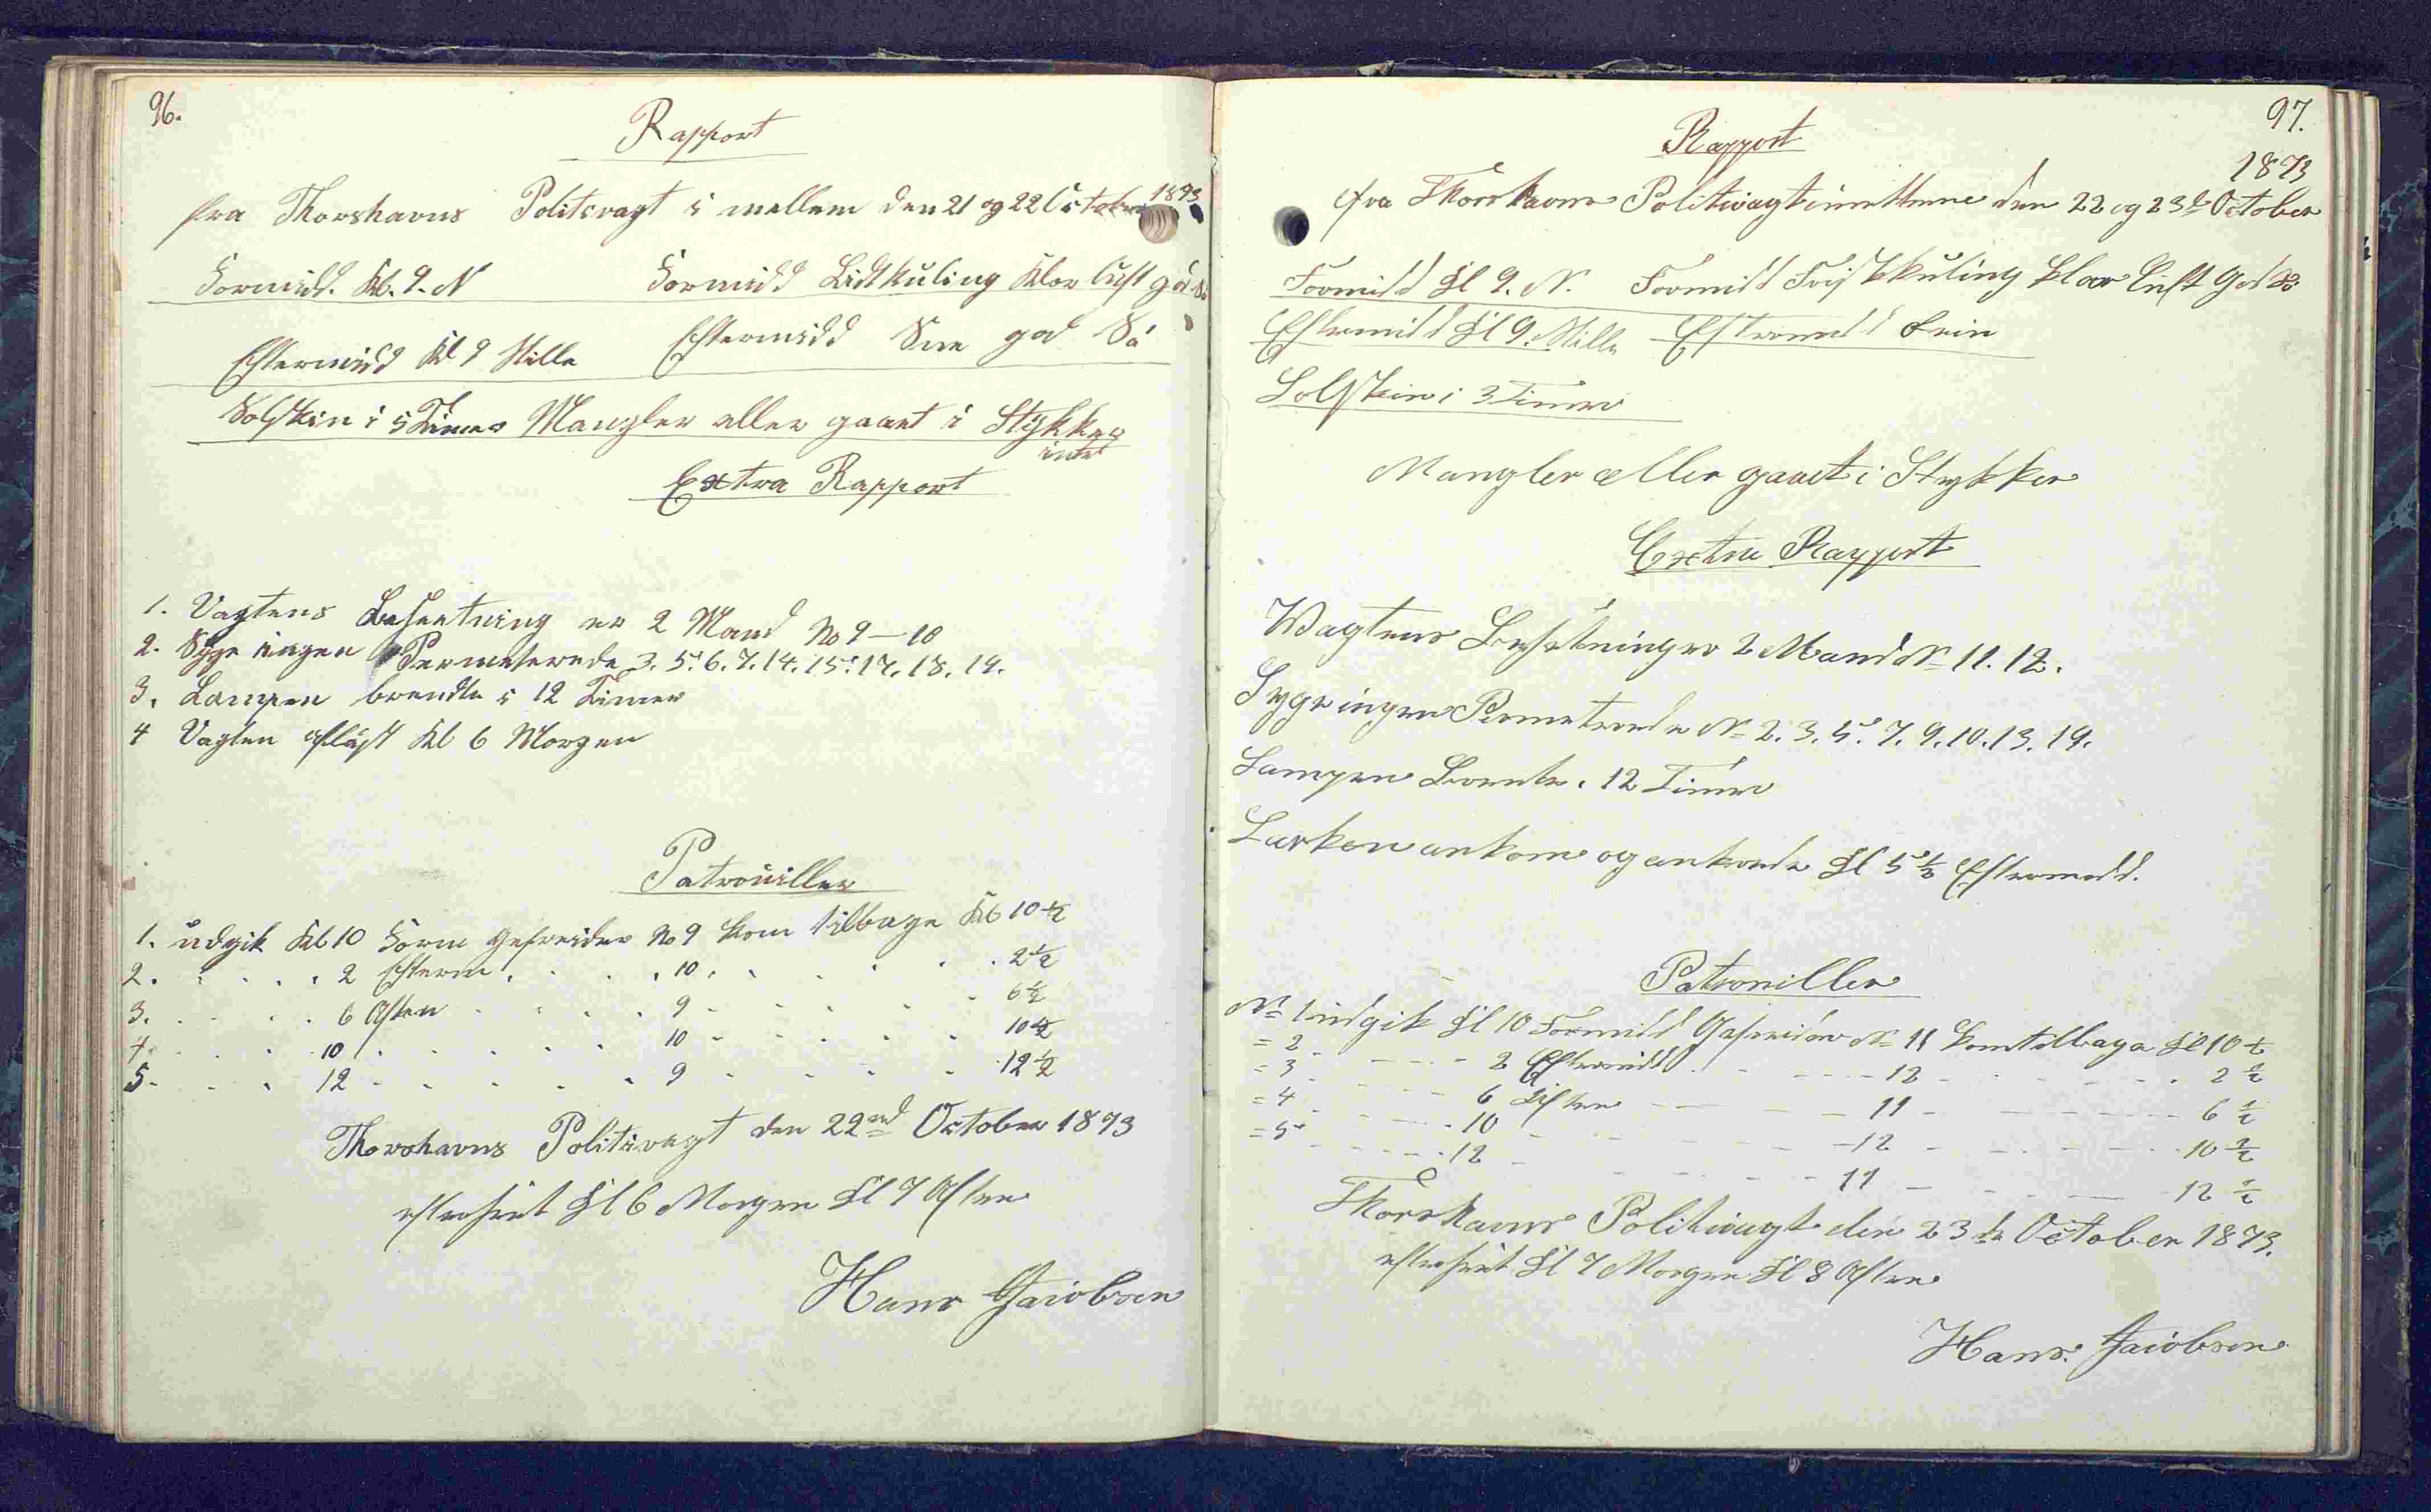 96.
Rapport
fra Thorshavns Politivagt i mellem den 21 og 22 October 1873
Formidd. Kl. 9. N Formidd Lidt Kuling Klar Luft god Sö
Eftermidd Kl 9 Stille Eftermidd Sne god Sö
Solskin i 5 Timer Mangler eller gaaet i Stykker
intet
Extra Rapport
1. Vagtens Besætning er 2 Mand No 9 — 10
2. Syge ingen Permeterede 3. 5. 6. 7. 14. 15. 17. 18. 19.
3. Lampen brendte i 12 Timer
4 Vagten aflöst Kl 6 Morgen
Patrouiller
1. udgik Kl 10 Form Gefreider No 9 kom tilbage Kl 10 ½
2. . . . . 2 Efterm . . . . 10 . . . . . 2 ½
3. . . . . 6 Aften . . . . 9 . . . . . 6 ½
4. . . . 10 . . . . . . 10 . . . . . 10 ½
5. . . . 12 . . . . . . 9 . . . . . 12 ½
Thorshavns Politivagt den 22nd October 1873
efterseet Kl 6 Morgen Kl 7 Aften
Hans Jacobsen
97.
Rapport
1873
fra Thorshavns Politivagt imellem den 22 og 23de October
Formidd Kl 9. N. Formidd Frisk Kuling klar Luft God Sö
Eftermidd Kl 9. Stille Eftermidd
Solskin i 3 Timer
Mangler eller gaaet i Stykker
Extra Rapport
Wagtens Besetning er 2 Mand No 11. 12.
Syge ingen Permeterede No 2. 3. 5. 7. 9. 10. 13. 19.
Lampen Brente i 12 Timer
ankom og ankrede Kl 5 ½ Eftermidd.
Patrouiller
No 1 udgik Kl 10 Formidd Gefreider No 11 kom tilbage Kl 10 ½
= 2 - - - - 2 Eftermidd - - - - 12 - - - - 2 ½
= 3 - - - - 6 Aften - - - - 11 - - - - 6 ½
= 4 - - - - 10 - - - - 12 - - - - 10 ½
= 5 - - - - 12 - - - - 11 - - - - 12 ½
Thorshavns Politivagt den 23de October 1873.
efterseet Kl 7 Morgen Kl 8 Aften
Hans. Jacobsen